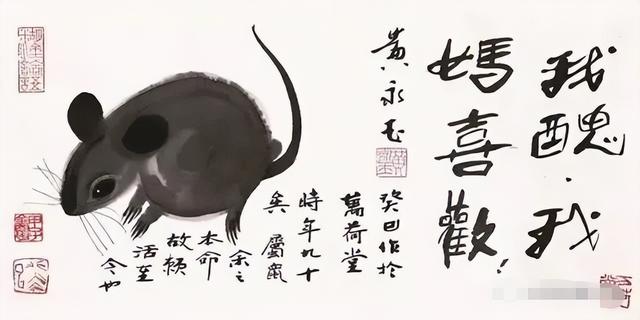 我醜·我
媽喜歡!
黄永玉
癸巳作於
萬荷堂
時年九十
矣 屬鼠
余之
本命
故賴
活至
今也